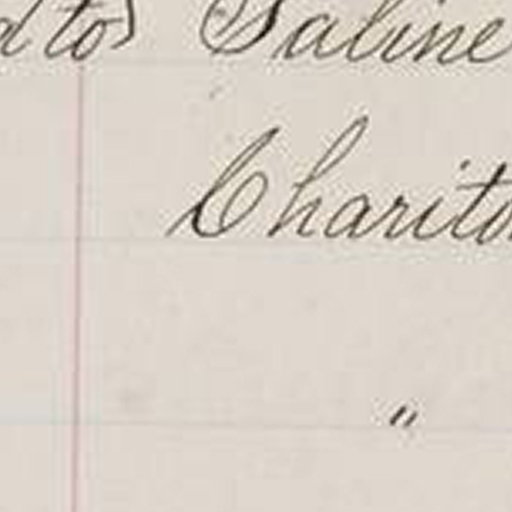 d to) Saline
Charito
"